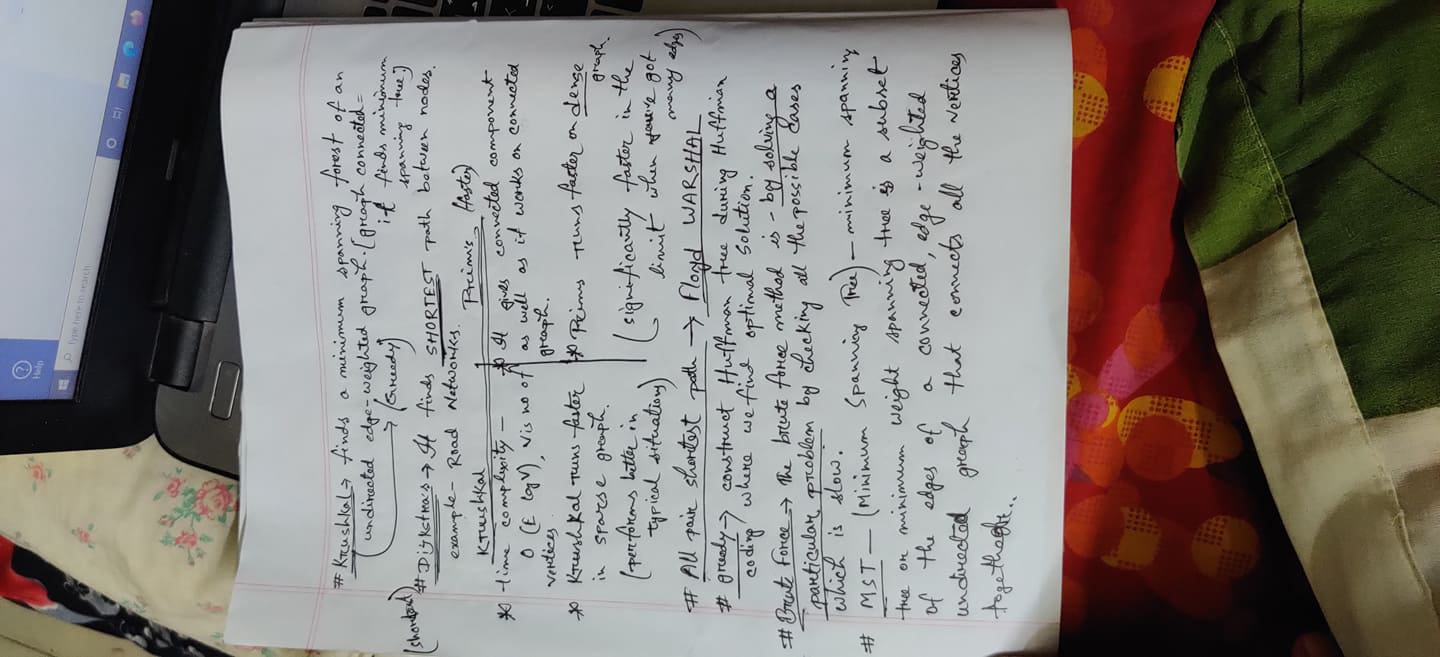 Help
Type here to search
# Krushkal → finds a minimum spanning forest of an
undirected edge-weighted graph. [graph connected =
(Greedy)
it finds minimum
spanning tree]
# Dijkstra's → It finds SHORTEST path between nodes.
example - Road Networks.
Krushkal
Prim's (faster)
* time complexity -
O (E logV), V is no of
vertices
* Krushkal runs faster
in sparse graph.
(performs better in
typical situations)
* It gives connected component
as well as it works on connected
graph.
* Prims runs faster on dense
graph.
(significantly faster in the
limit when you've got
many edges)
# All pair shortest path → Floyd WARSHAL
# greedy → construct Huffman tree during Huffman
coding where we find optimal solution.
# Brute Force → The brute force method is - by solving a
particular problem by checking all the possible cases
which is slow.
# MST - (Minimum Spanning Tree) - minimum spanning
tree or minimum weight spanning tree is a subset
of the edges of a connected, edge-weighted
undirected graph that connects all the vertices
together..